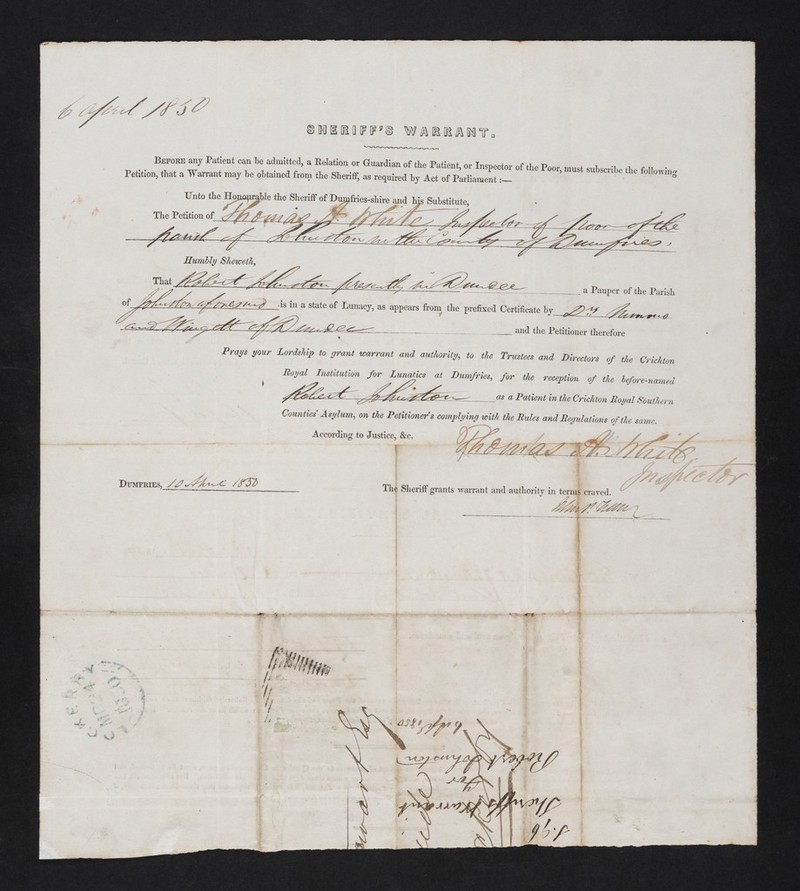 6 April 1850
SHERIFF'S WARRANT.
BEFORE any Patient can be admitted, a Relation or Guardian of the Patient, or Inspector of the Poor, must subscribe the following
Petition, that a Warrant may be obtained from the Sheriff, as required by Act of Parliament :—
Unto the Honourable the Sheriff of Dumfries-shire and his Substitute,
The Petition of Thomas A. White Inspector of poor of the
parish of Johnston in the County of Dumfries.
Humbly Sheweth,
That Robert Johnston presently in Dundee a Pauper of the Parish
of Johnston aforesaid is in a state of Lunacy, as appears from the prefixed Certificate by Drs Nimmo
and Wingett of Dundee and the Petitioner therefore
Prays your Lordship to grant warrant and authority, to the Trustees and Directors of the Crichton
Royal Institution for Lunatics at Dumfries, for the reception of the before-named
Robert Johnston as a Patient in the Crichton Royal Southern
Counties' Asylum, on the Petitioner's complying with the Rules and Regulations of the same.
According to Justice, &c.
Thomas A. White
Inspector
DUMFRIES, 10 April 1850
The Sheriff grants warrant and authority in terms craved.
Sheriff's Warrant
for
Robert Johnston
6 Apl 1850
Esq